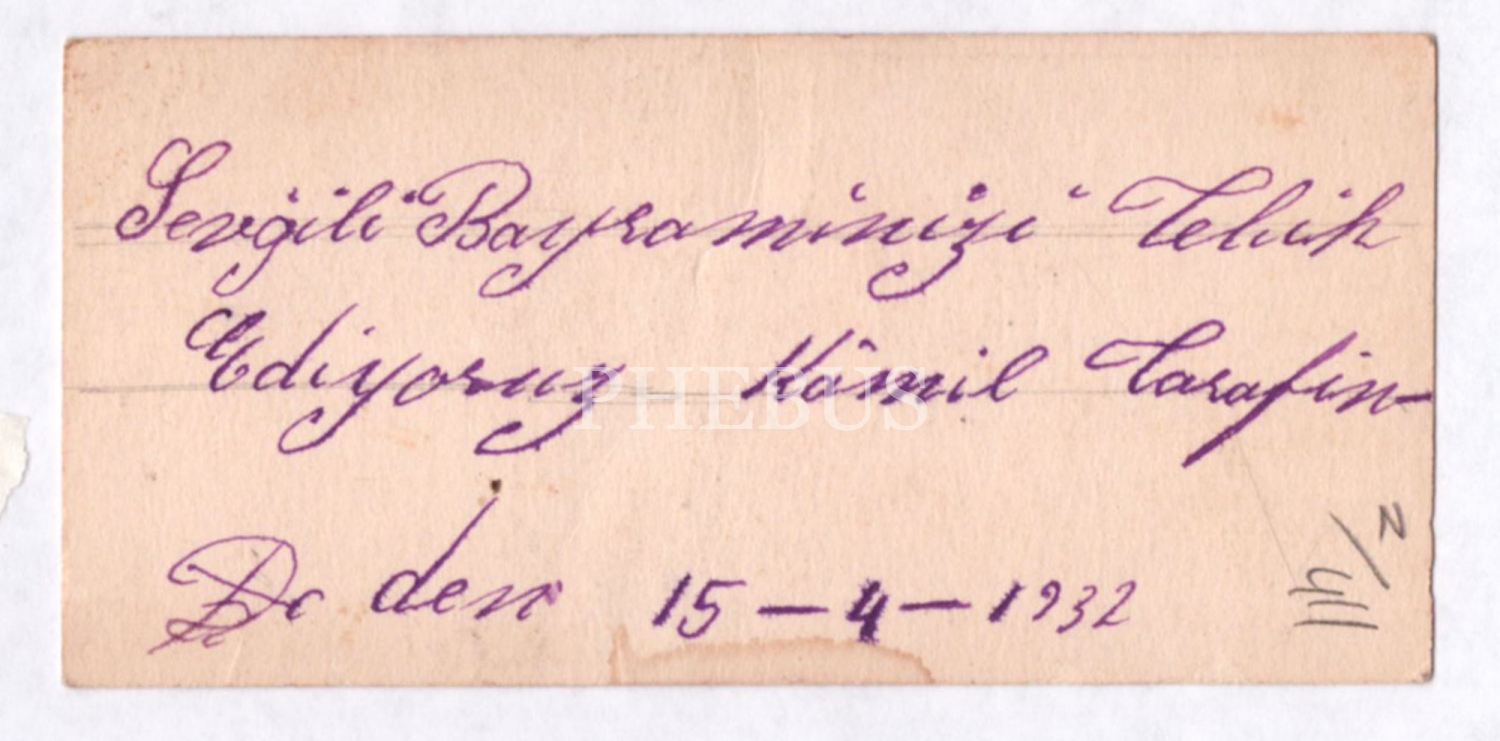 Sevgili Bayraminizi Tebrik
Ediyoruz Kâmil Tarafin-
den 15-4-1932
PHEBUS